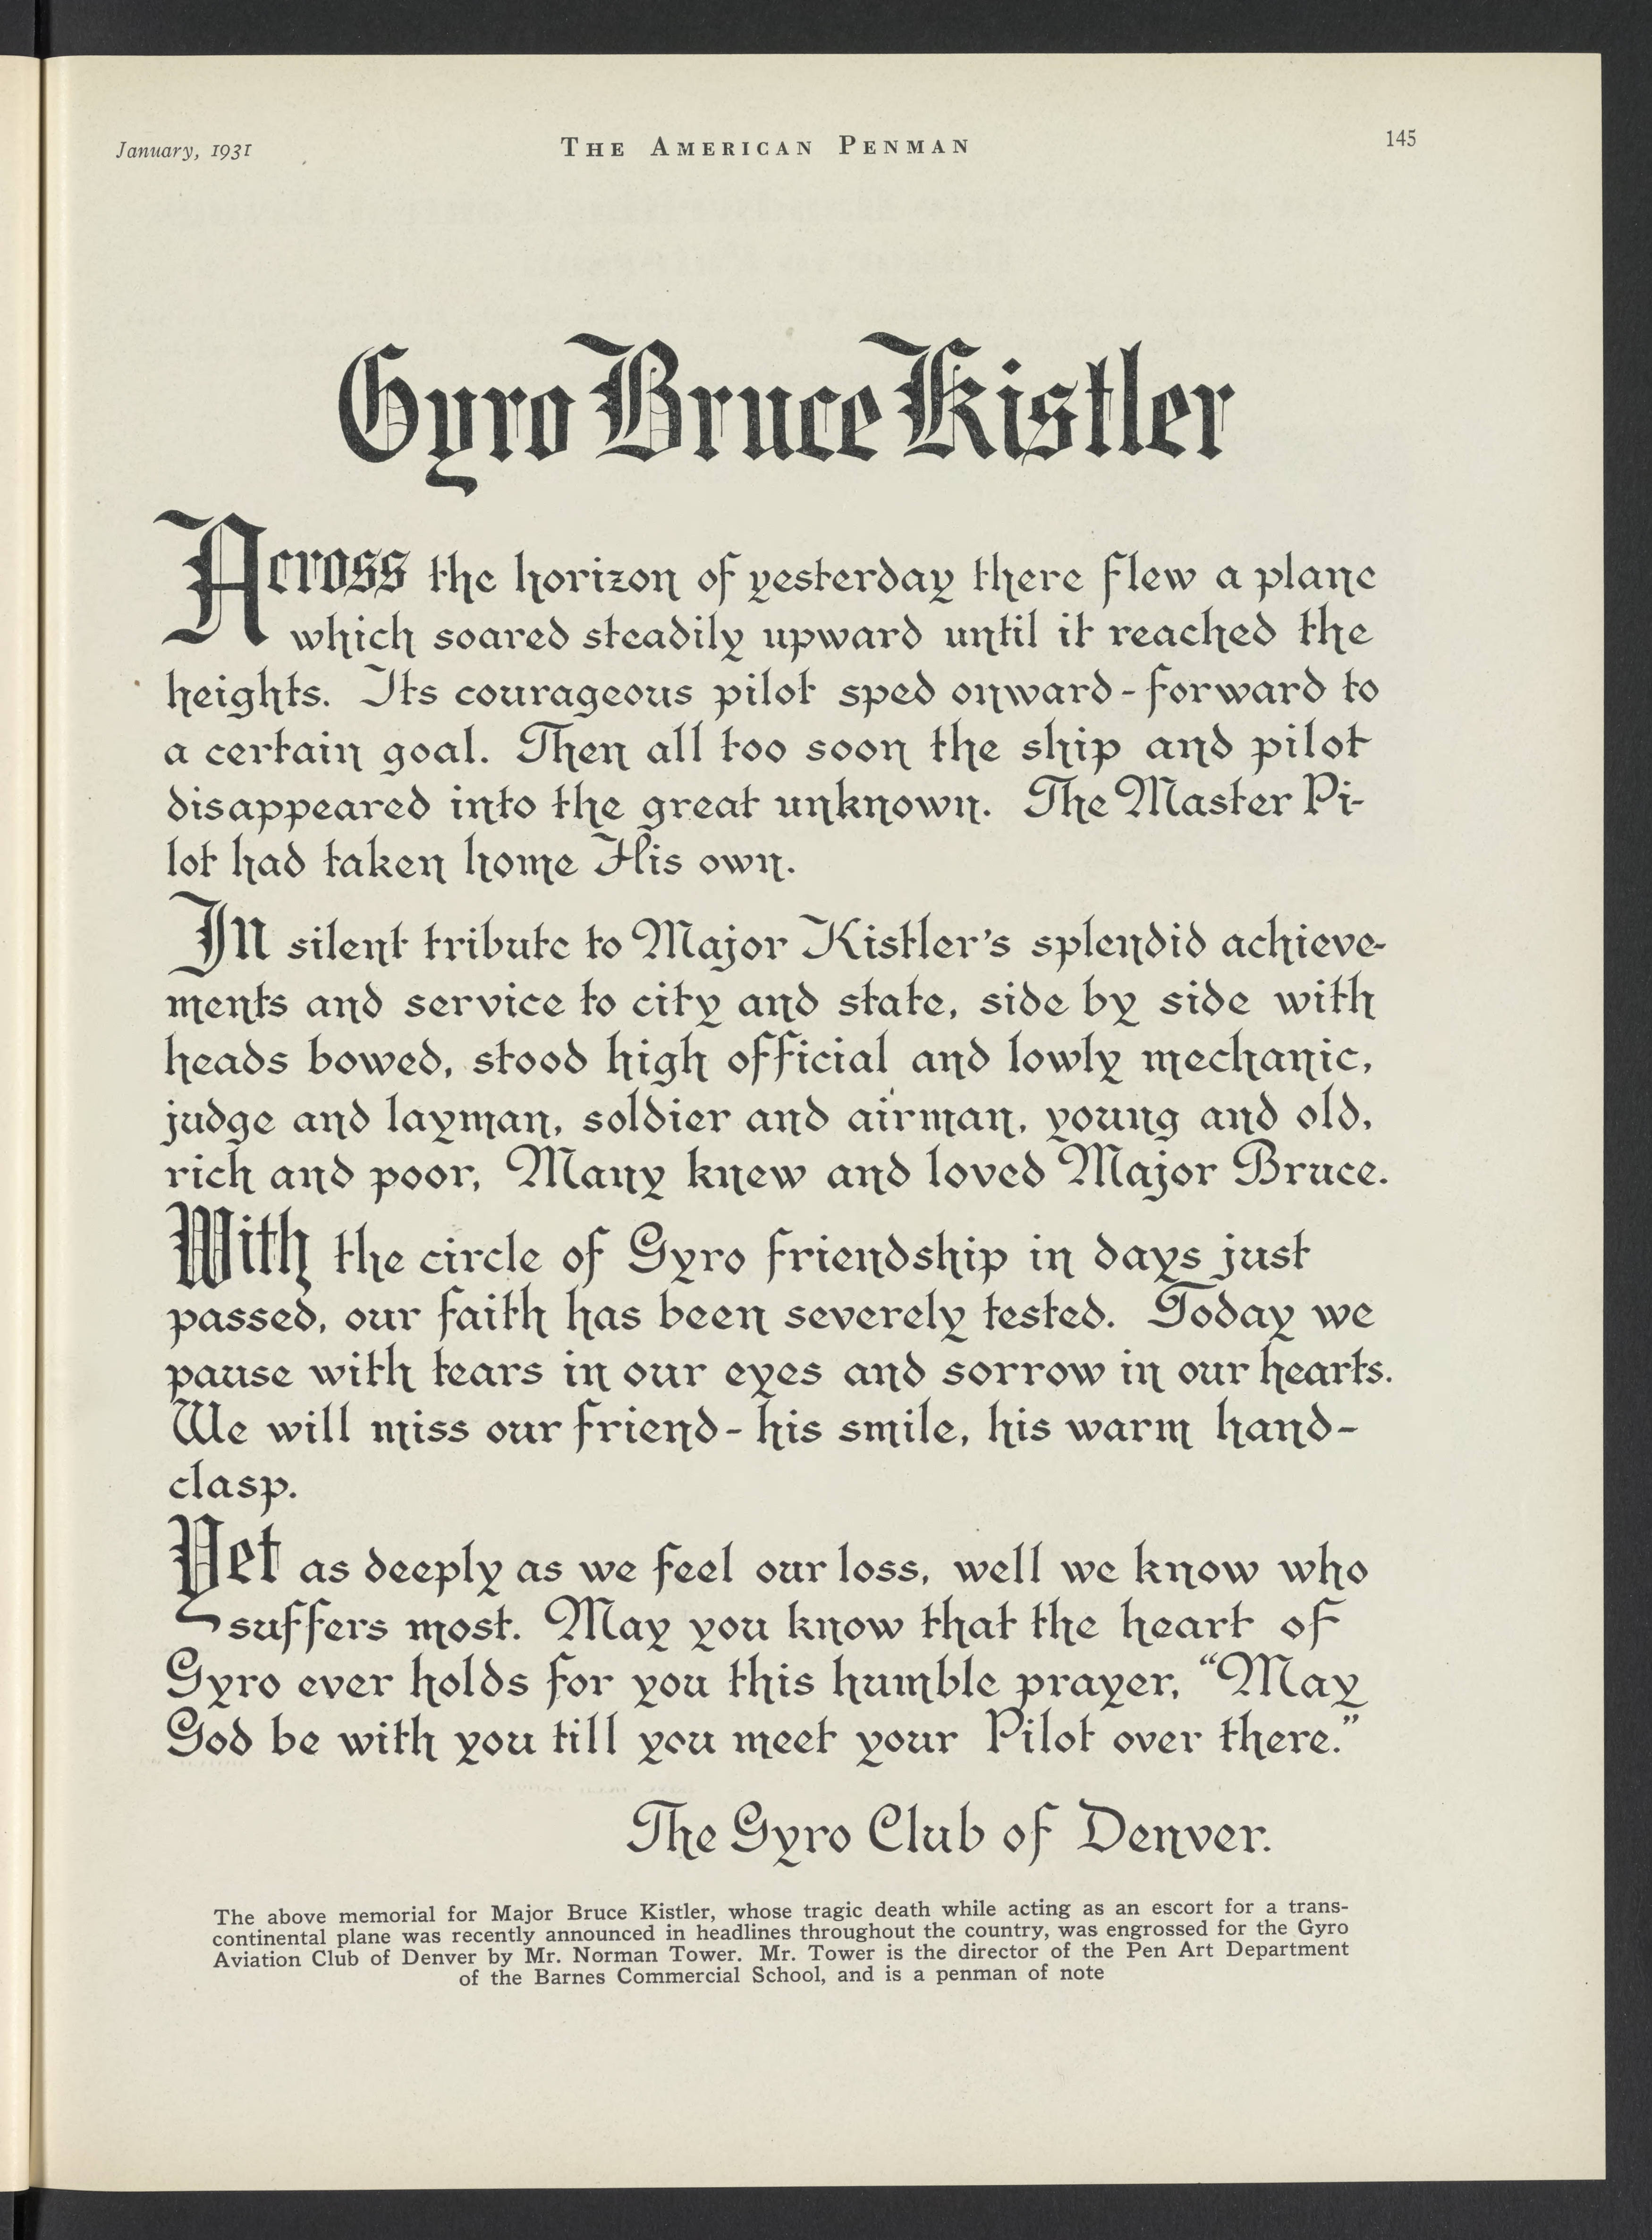 January, 1931
THE AMERICAN PENMAN
145
Gyro Bruce Kistler
Across the horizon of yesterday there flew a plane
which soared steadily upward until it reached the
heights. Its courageous pilot sped onward-forward to
a certain goal. Then all too soon the ship and pilot
disappeared into the great unknown. The Master Pi-
lot had taken home His own.
In silent tribute to Major Kistler's splendid achieve-
ments and service to city and state, side by side with
heads bowed, stood high official and lowly mechanic,
judge and layman, soldier and airman, young and old,
rich and poor, Many knew and loved Major Bruce.
With the circle of Gyro friendship in days just
passed, our faith has been severely tested. Today we
pause with tears in our eyes and sorrow in our hearts.
We will miss our friend-his smile, his warm hand-
clasp.
Yet as deeply as we feel our loss, well we know who
suffers most. May you know that the heart of
Gyro ever holds for you this humble prayer, "May
God be with you till you meet your Pilot over there."
The Gyro Club of Denver.
The above memorial for Major Bruce Kistler, whose tragic death while acting as an escort for a trans-
continental plane was recently announced in headlines throughout the country, was engrossed for the Gyro
Aviation Club of Denver by Mr. Norman Tower. Mr. Tower is the director of the Pen Art Department
of the Barnes Commercial School, and is a penman of note